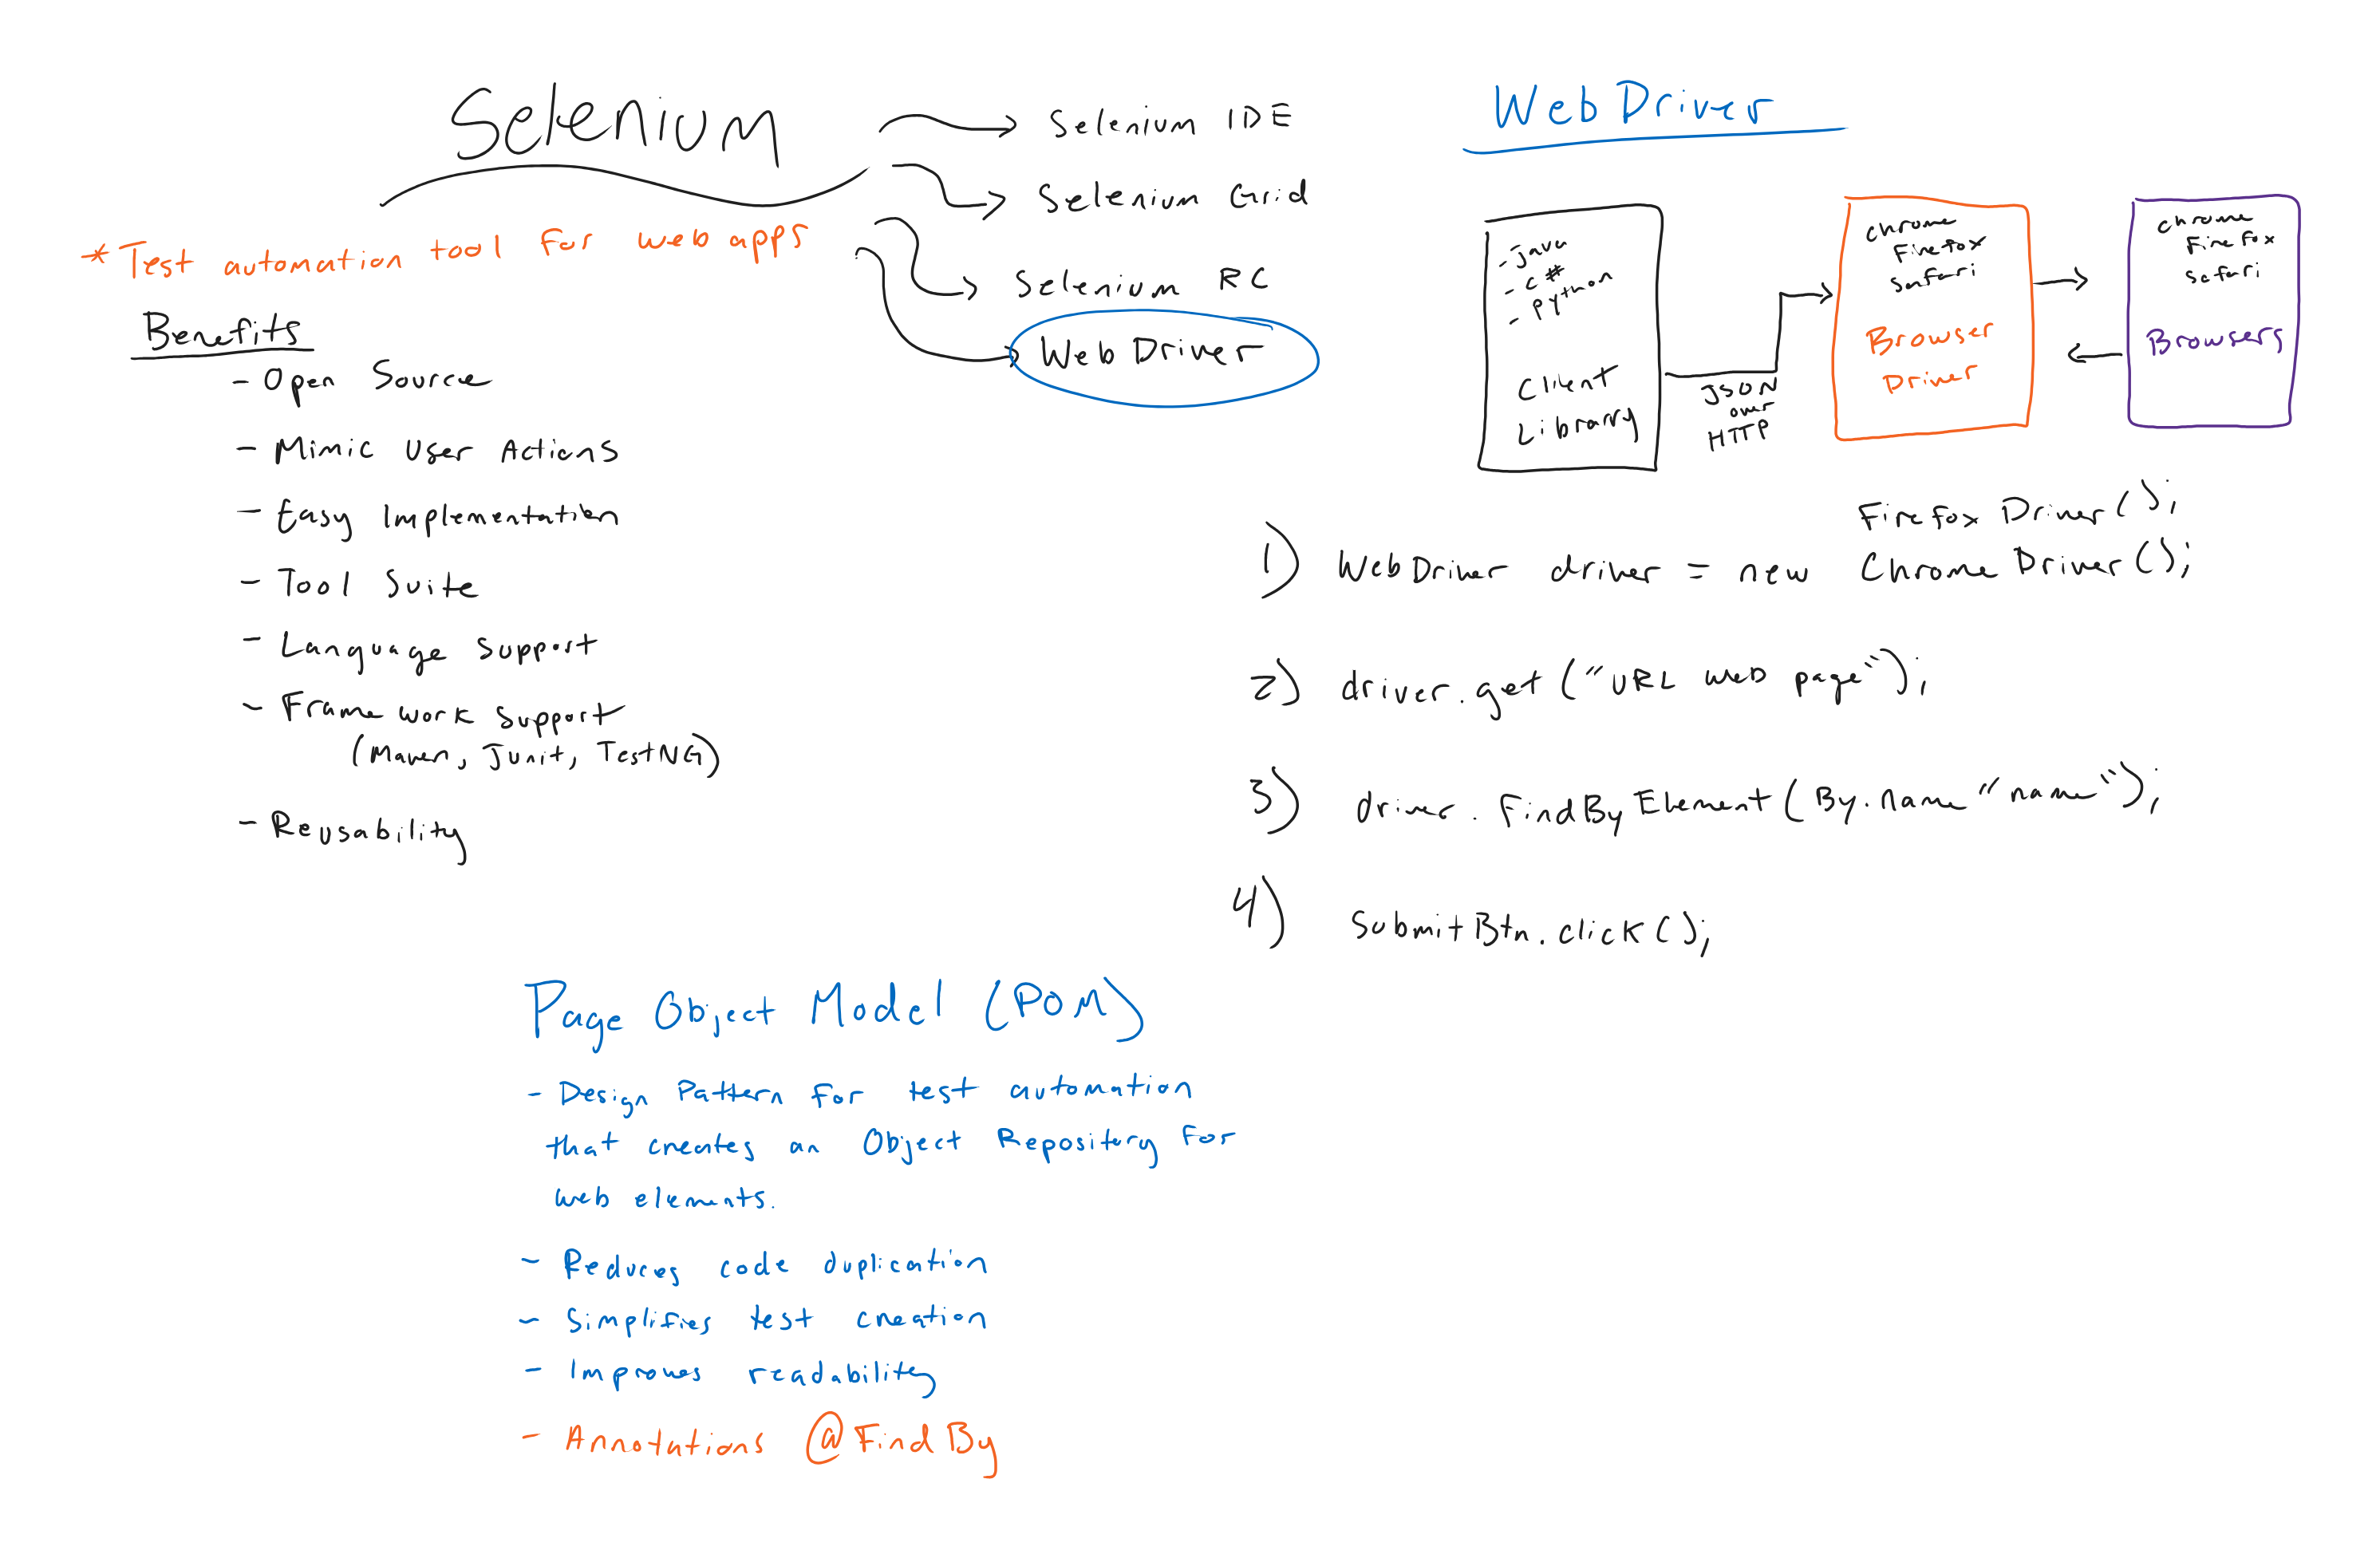 Selenium
Selenium IDE
Selenium Grid
Selenium RC
WebDriver
* Test automation tool for web apps
Benefits
- Open Source
- Mimic User Actions
- Easy Implementation
- Tool Suite
- Language Support
- Framework Support
(Maven, Junit, TestNG)
- Reusability
WebDriver
- Java
- C#
- Python
Client
Library
JSON
over
HTTP
Chrome
Firefox
Safari
Browser
Driver
Chrome
Firefox
Safari
Browsers
FirefoxDriver();
1) WebDriver driver = new ChromeDriver();
2) driver.get("URL web page");
3) driver.FindByElement(By.Name "name");
4) SubmitBtn.click();
Page Object Model (POM)
- Design Pattern for test automation
that creates an Object Repository for
web elements.
- Reduces code duplication
- Simplifies test creation
- Improves readability
- Annotations @FindBy